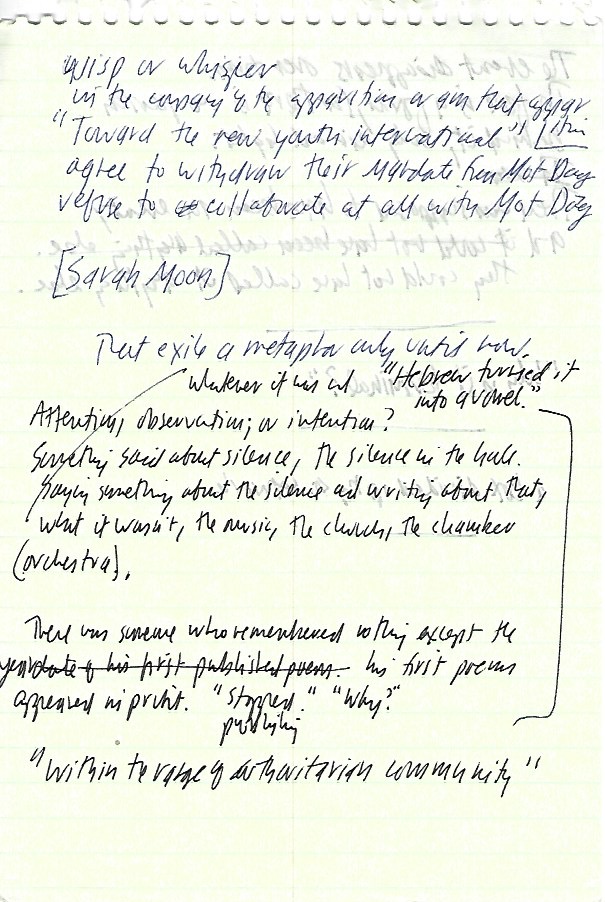 wisp or whisper
in the company of the apparition or am that appar
"Toward the new youth international"
agree to withdraw their mandate from Mot Dag
refuse to collaborate at all with Mot Dag
[Sarah Moon]
That exile a metaphor only until now.
whatever it was not "Hebrew turned it
into a vowel."
Attention, observation; or intention?
Something said about silence, the silence in the hall.
Saying something about the silence and writing about that,
what it wasn't, the music, the church, the chamber
(orchestra).
There was someone who remembered nothing except the
year date of his first published poems. his first poems
appeared in print. "Stopped." "Why?"
publishing
"within the range of authoritarian community"